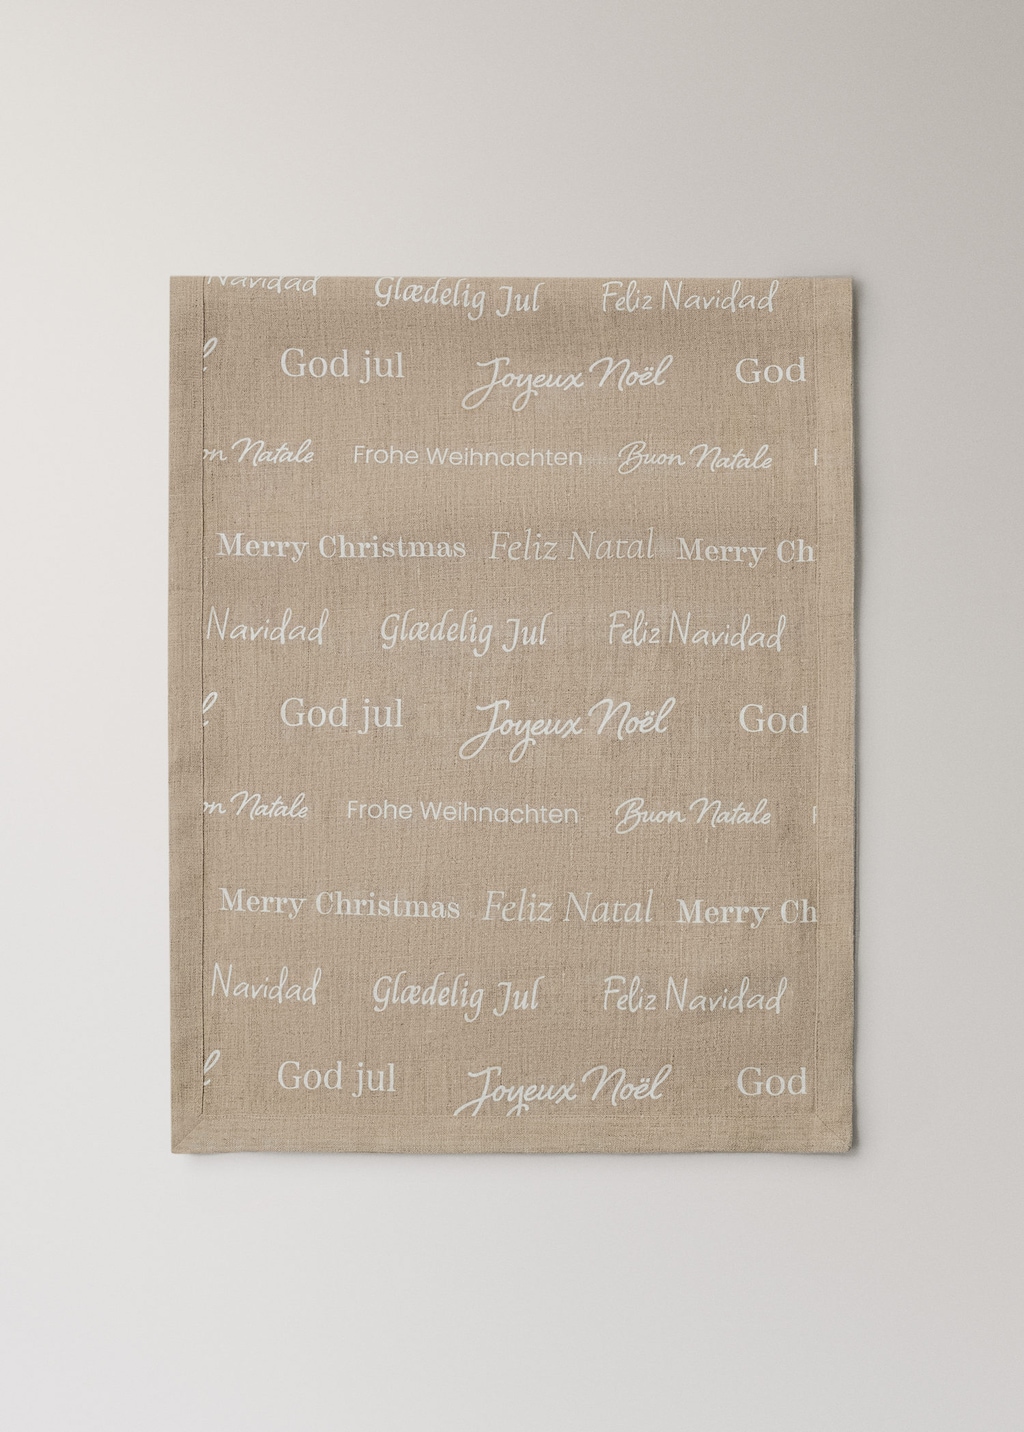 Navidad Glædelig Jul Feliz Navidad
God jul Joyeux Noël God
Natale Frohe Weihnachten Buon Natale
Merry Christmas Feliz Natal Merry Ch
Navidad Glædelig Jul Feliz Navidad
God jul Joyeux Noël God
Natale Frohe Weihnachten Buon Natale
Merry Christmas Feliz Natal Merry Ch
Navidad Glædelig Jul Feliz Navidad
God jul Joyeux Noël God